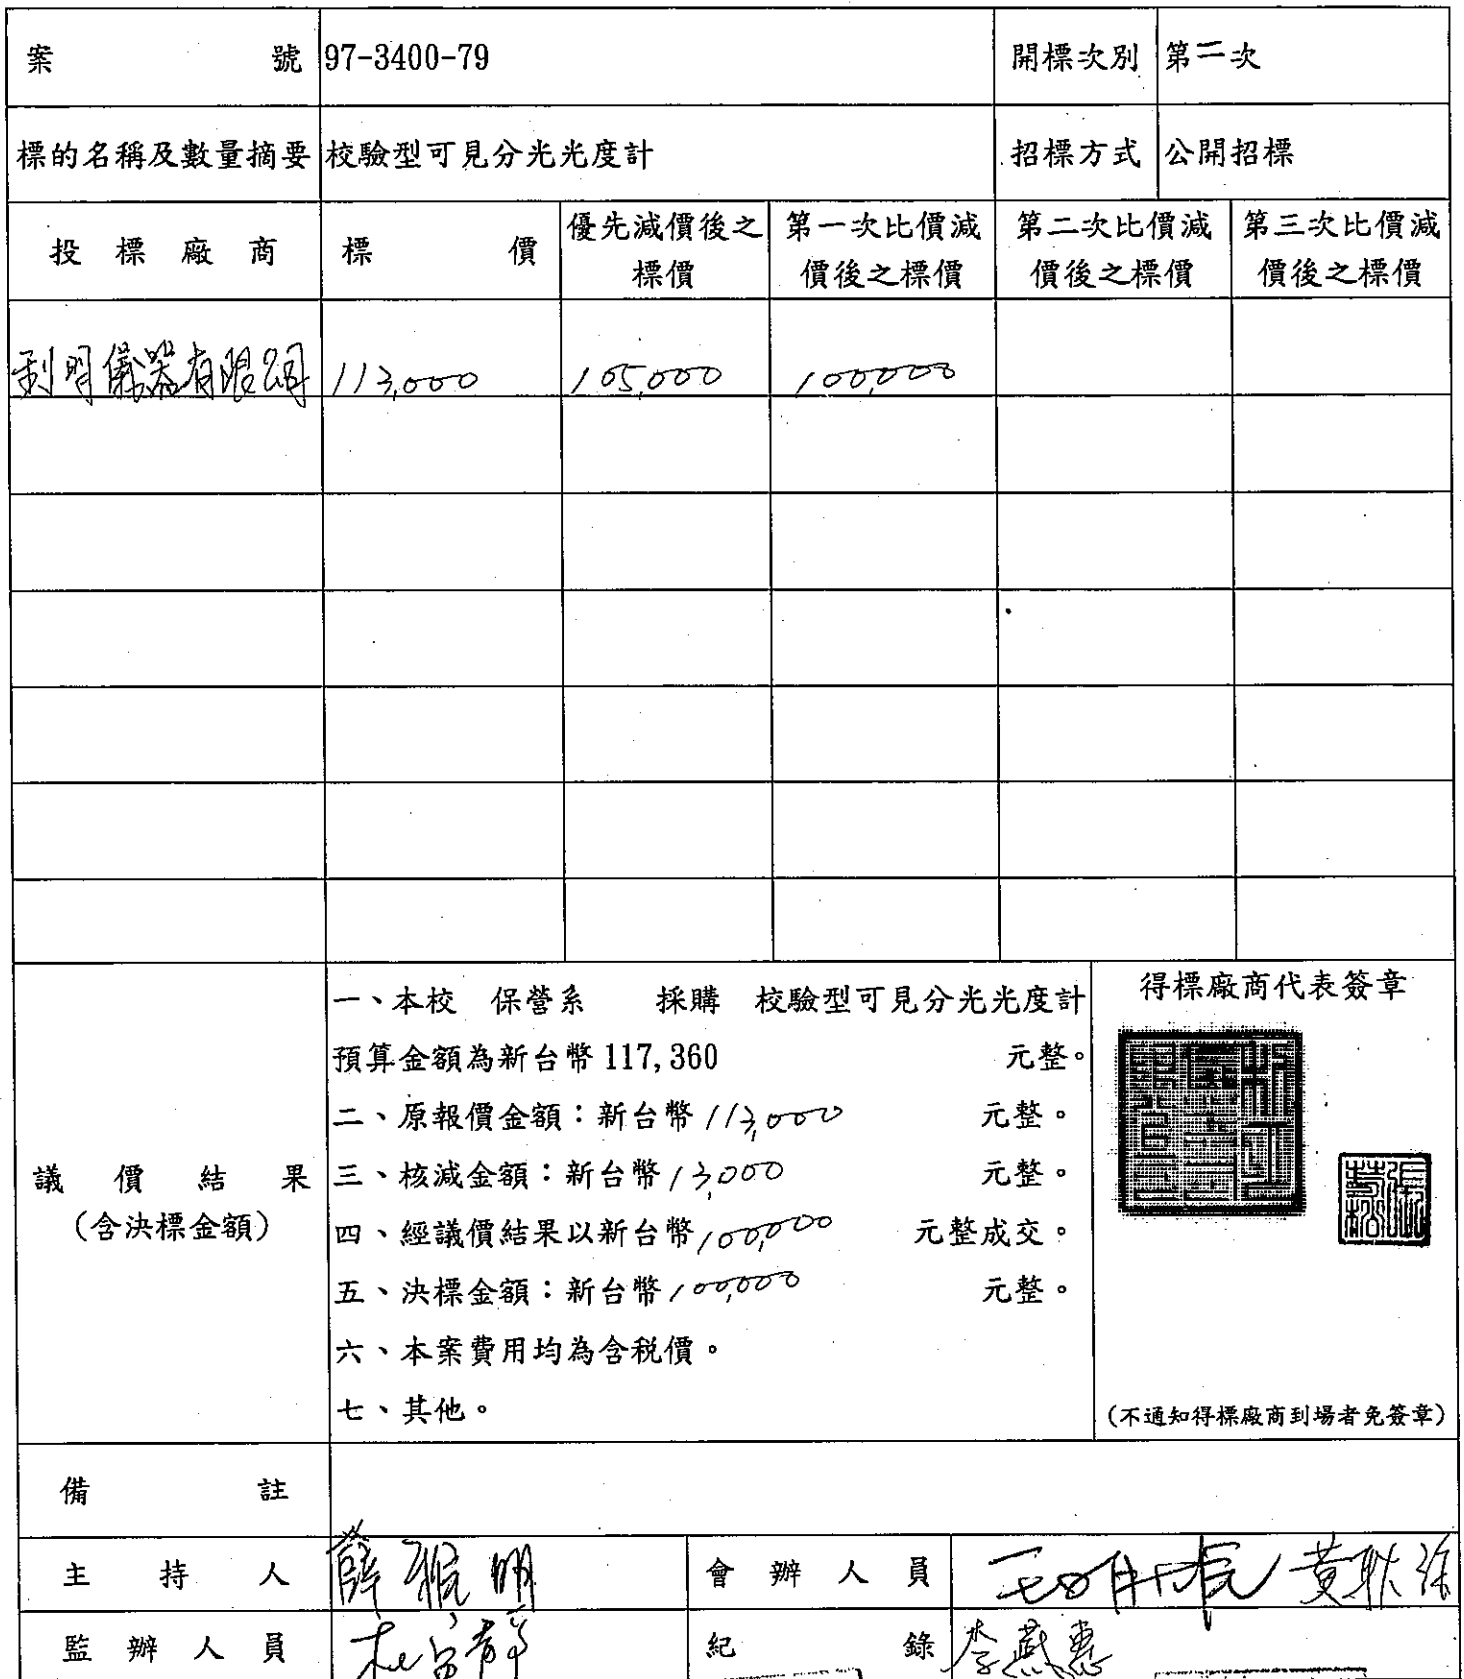 案號 97-3400-79 開標次別 第二次
標的名稱及數量摘要 校驗型可見分光光度計 招標方式 公開招標
投標廠商 標價 優先減價後之標價 第一次比價減價後之標價 第二次比價減價後之標價 第三次比價減價後之標價
利明儀器有限公司 113,000 105,000 100,000
議價結果
(含決標金額)
一、本校 保營系 採購 校驗型可見分光光度計
預算金額為新台幣 117,360 元整。
二、原報價金額：新台幣 113,000 元整。
三、核減金額：新台幣 13,000 元整。
四、經議價結果以新台幣 100,000 元整成交。
五、決標金額：新台幣 100,000 元整。
六、本案費用均為含稅價。
七、其他。
得標廠商代表簽章
(不通知得標廠商到場者免簽章)
備註
主持人 會辦人員
監辦人員 紀錄 李燕惠